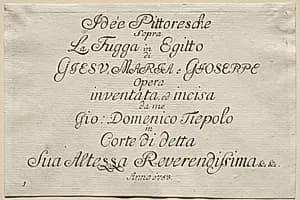 Idée Pittoresche
Sopra
La Fugga in Egitto
di
GIESV, MARIA e GIOSEPPE
Opera
inventata, ed incisa
da me
Gio: Domenico Tiepolo
in
Corte di detta
Sua Altezza Reverendissima &c. &c.
Anno 1750.
1